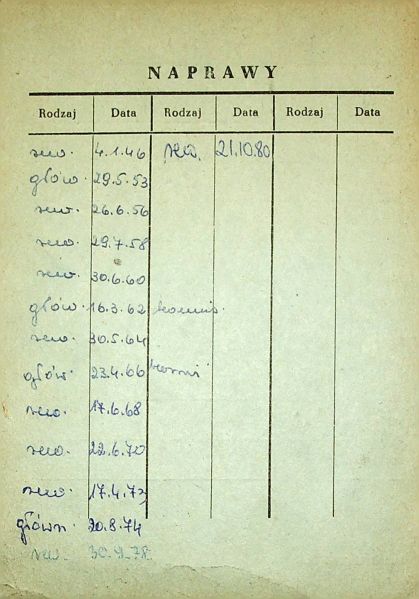 NAPRAWY
Rodzaj Data Rodzaj Data Rodzaj Data
rew. 4.1.46 rew. 21.10.80
głów. 29.5.53
rew. 26.6.56
rew. 29.7.58
rew. 30.6.60
głów. 16.3.62
rew. 30.5.64
głów. 23.4.66
rew. 17.6.68
rew. 22.6.70
rew. 17.4.73
główn. 20.8.74
rew. 30.9.78